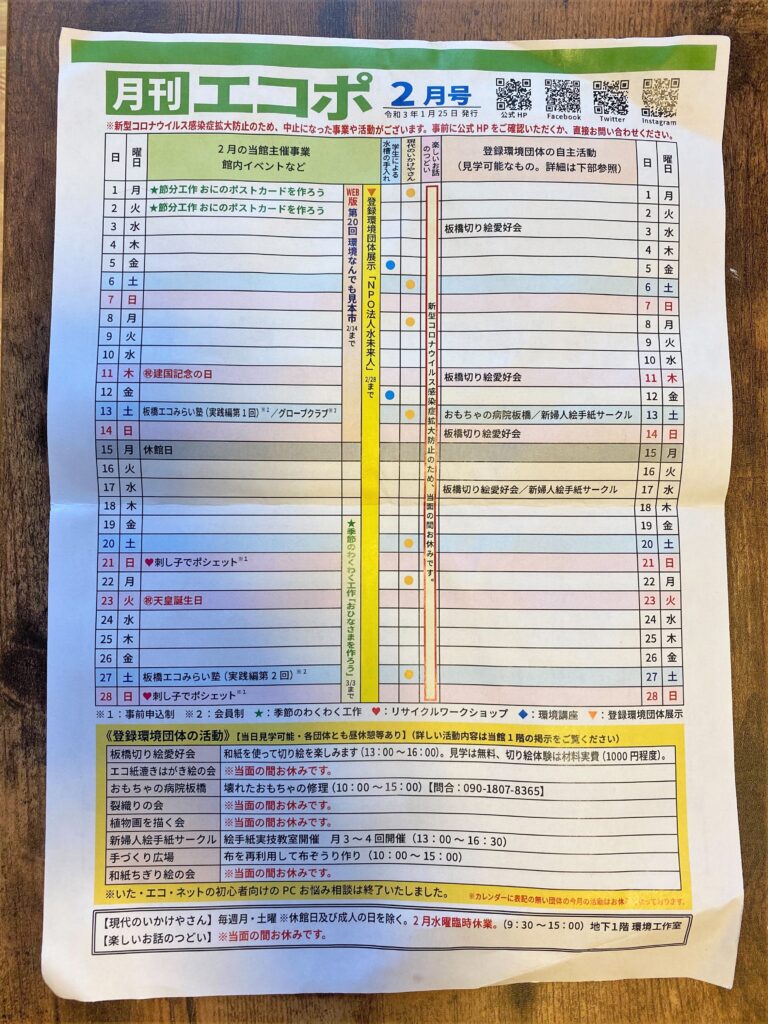 月刊 エコポ 2月号
令和3年1月25日 発行
公式HP Facebook Twitter Instagram
※新型コロナウイルス感染症拡大防止のため、中止になった事業や活動がございます。事前に公式HPをご確認いただくか、直接お問い合わせください。
日 曜日 2月の当館主催事業 館内イベントなど 学生による水槽の手入れ 現代のいかけやさん 楽しいお話のつどい 登録環境団体の自主活動 (見学可能なもの。詳細は下部参照) 日 曜日
1 月 ★節分工作 おにのポストカードを作ろう 1 月
2 火 ★節分工作 おにのポストカードを作ろう 2 火
3 水 板橋切り絵愛好会 3 水
4 木 4 木
5 金 5 金
6 土 6 土
7 日 7 日
8 月 8 月
9 火 9 火
10 水 10 水
11 木 ㊗建国記念の日 板橋切り絵愛好会 11 木
12 金 12 金
13 土 板橋エコみらい塾(実践編第1回)※2/グローブクラブ※2 おもちゃの病院板橋/新婦人絵手紙サークル 13 土
14 日 板橋切り絵愛好会 14 日
15 月 休館日 15 月
16 火 16 火
17 水 板橋切り絵愛好会/新婦人絵手紙サークル 17 水
18 木 18 木
19 金 19 金
20 土 20 土
21 日 ♥刺し子でポシェット※1 21 日
22 月 22 月
23 火 ㊗天皇誕生日 23 火
24 水 24 水
25 木 25 木
26 金 26 金
27 土 板橋エコみらい塾(実践編第2回)※2 27 土
28 日 ♥刺し子でポシェット※1 28 日
WEB版 第20回 環境なんでも見本市 2/14まで
★季節のわくわく工作『おひなさまを作ろう』3/3まで
▼登録環境団体展示「NPO法人水未来人」2/28まで
新型コロナウイルス感染症拡大防止のため、当面の間お休みです。
※1:事前申込制 ※2:会員制 ★:季節のわくわく工作 ♥:リサイクルワークショップ ◆:環境講座 ▼:登録環境団体展示
《登録環境団体の活動》【当日見学可能・各団体とも昼休憩等あり】(詳しい活動内容は当館1階の掲示をご覧ください)
板橋切り絵愛好会 和紙を使って切り絵を楽しみます(13:00～16:00)。見学は無料、切り絵体験は材料実費(1000円程度)。
エコ紙漉きはがき絵の会 ※当面の間お休みです。
おもちゃの病院板橋 壊れたおもちゃの修理(10:00～15:00)【問合:090-1807-8365】
裂織りの会 ※当面の間お休みです。
植物画を描く会 ※当面の間お休みです。
新婦人絵手紙サークル 絵手紙実技教室開催 月3～4回開催(13:00～16:30)
手づくり広場 布を再利用して布ぞうり作り(10:00～15:00)
和紙ちぎり絵の会 ※当面の間お休みです。
※いた・エコ・ネットの初心者向けのPCお悩み相談は終了いたしました。 ※カレンダーに表記の無い団体の今月の活動はお休みとなっております。
【現代のいかけやさん】毎週月・土曜 ※休館日及び成人の日を除く。2月水曜臨時休業。(9:30～15:00) 地下1階 環境工作室
【楽しいお話のつどい】※当面の間お休みです。